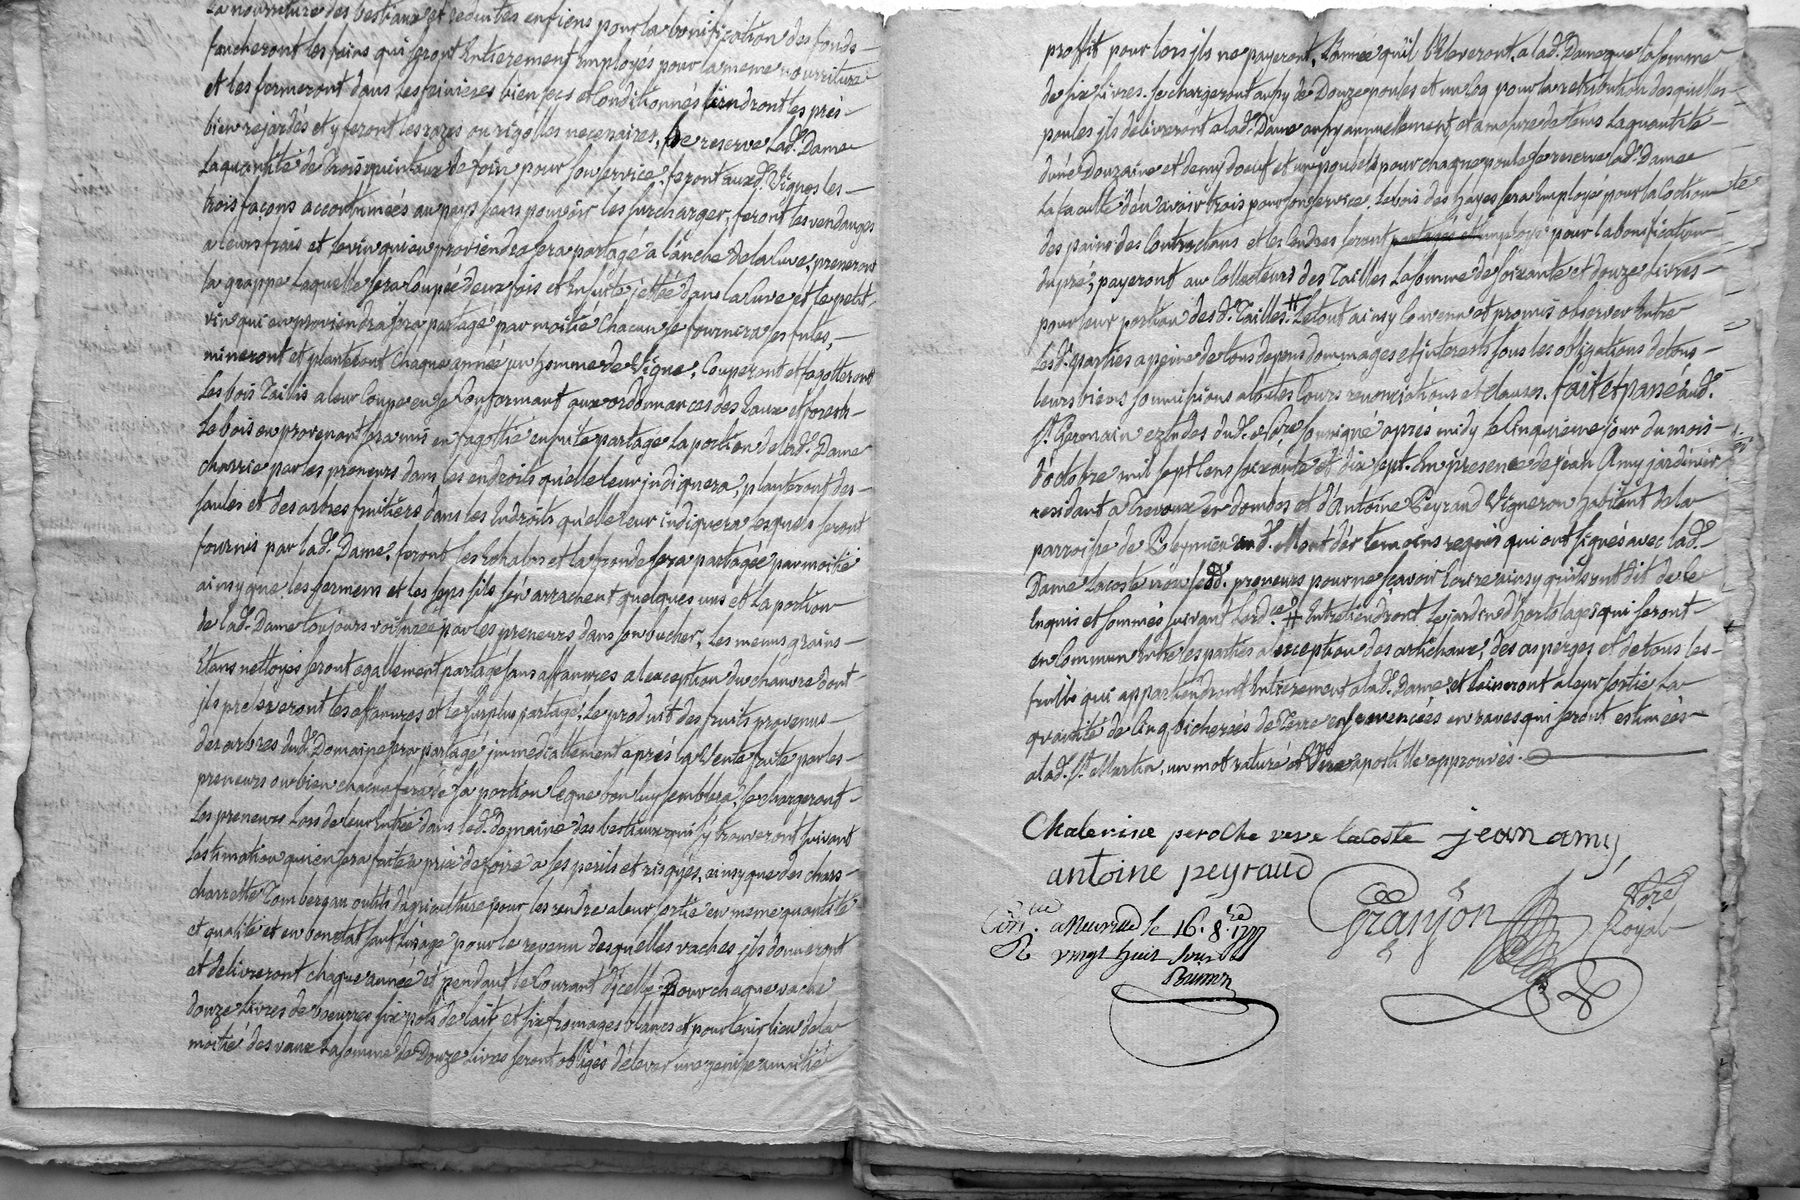 La nourriture des bestiaux et reduites en fiens pour la bonification des fonds
faucheront les foins qui seront Entierement Employés pour la meme nourriture
et les fermeront dans les feinieres bien secs et Conditionnés tiendront les prés
bien rejardés et y feront les razes ou rigolles necessaires, Se reserve Lad.e Dame
La quantité de trois quintaux de foin pour son service. feront auxd. Vignes les
trois façons accoutumées au pays sans pouvoir les surcharger, feront les vendanges
a leurs frais et le vin qui en proviendra sera partagé a l'anche de la Cuve, prendront
la grappe Laquelle sera Coupée deux fois et Ensuite jettée dans la Cuve et le petit
vin qui en proviendra sera partagé par moitié Chacun se fournira ses futes,
mineront et planteront Chaque année un hommée de Vigne, Couperont et fagotteront
Les bois Taillis a leur Coupe en se Conformant aux ordonnances des Eaux et forests
Le bois en provenant sera mis en fagottié ensuite partagé la portion de lad.e Dame
charriée par les preneurs dans les endroits qu'elle leur indiquera, planteront des
saules et des arbres fruitiers dans les Endroits qu'elle leur indiquera lesquels seront
fournis par lad.e Dame, feront les et la fronde sera partagée par moitié
ainsy que les sermens et les seps s'ils s'en arrachent quelques uns et La portion
de lad.e Dame toujours voiturée par les preneurs dans son bucher, Les menus grains
Etans nettoyés seront egallement partagé sans affanures a l'exception du chanvre dont
ils preleveront les affanures et le surplus partagé, Le produit des fruits provenus
des arbres dud. Domaine sera partagé immediattement après la Vente faite par les
preneurs ou bien chacun fera de sa portion Ce que bon luy semblera, Se chargeront
Les preneurs Lors de leur Entrée dans led. Domaine des bestiaux qui s'y trouveront suivant
L'estimation qui en sera faite a prix de foire a ses perils et risques, ainsy que des chars
charrette Tombereau outils d'agriculture pour les rendre a leur sortie en meme quantité
et qualité et en bon état sauf l'usage pour le revenu desquelles vaches ils donneront
et delivreront chaque année et pendant le Courant d'jcelle Pour chaque vache
douze Livres de beurres six pots de lait et six fromages blancs et pour tenir lieu de la
moitié des vaux La somme de Douze Livres seront obligés d'élever une genisse a moitié
proffit pour lors ils ne payeront, L'année qu'il l'Eleveront, a lad.e Dame que la somme
de six Livres. Se chargeront aussy de Douze poules et un Coq pour la retribution desquelles
poules ils delivreront a lad.e Dame aussy annuellement et a mesure de tems La quantité
d'une Douzaine et demy d'oeuf et un poulet pour chaque poule se reserve lad.e Dame
La faculté d'en avoir trois pour son service. Le bois des hayes sera Employé pour la Coction
des pains des Contractans et les Cendres seront partagés et employé pour la bonification
du pré, payeront au Collecteurs des Tailles La somme de soixante et douze Livres
pour leur portion des d. Tailles. # Le tout ainsy Convenu et promis observer Entre
Lesd. parties a peine de tous depens dommages et interests sous les obligations de tous
leurs biens soumissions a toutes Cours renonciations et clauses. fait et passé aud.
St. Germain Etudes dud. No.re soussigné après midy le Cinquieme jour du mois
d'octobre mil sept Cens soixante et dix sept. En presence de Jean Amy jardinier
residant a Trevoux En dombes et d'Antoine Peyraud Vigneron habitant de la
parroisse de Poleymieux au d. Mont d'or temoins requis qui ont signés avec lad.e
Dame Lacoste non lesd. preneurs pour ne sçavoir Ecrire ainsy qu'ils ont dit de ce
Enquis et sommés suivant l'ord.ce # Entretiendront Le jardin d'hortolages qui seront
en Commun Entre les parties a l'exception des artichaux, des asperges et de tous les
fruits qui appartiendront Entierement a lad.e Dame et laisseront a leur sortie La
quantité de Cinq bicherées de Terre en raves qui seront estimées
a lad. St. Martin, un mot raturé et apostille approuvés.
Chaterine peroche veve lacoste jean amy
antoine peyraud
Granjon No.re Royal
Con.lé a Neuville le 16. 8.bre 1777
R vingt huit sous